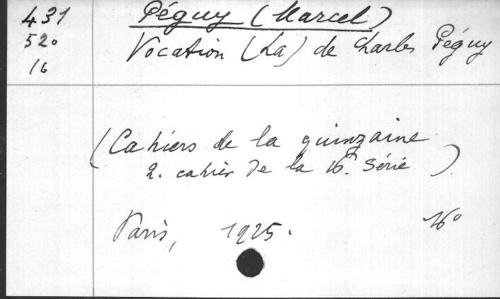 431 Péguy (Marcel)
520 Vocation (La) de Charles Péguy
16
(Cahiers de la quinzaine
2. cahier de la 16e Série)
Paris, 1925. 16°